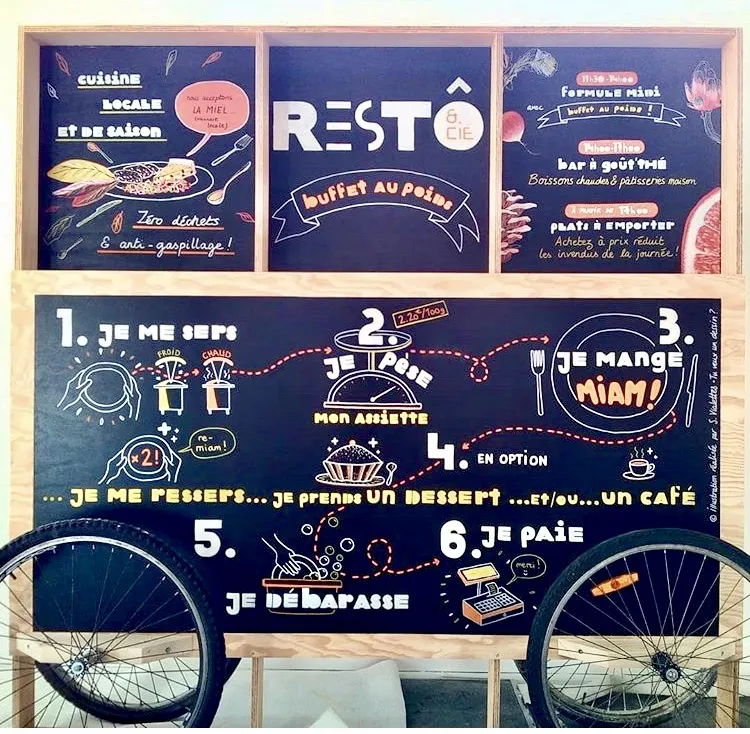 cuisine
locale
et de saison
nous acceptons
LA MIEL...
(monnaie
locale)
Zéro déchets
& anti-gaspillage !
RESTÔ
& CIE
buffet au poids
11h30 - 14h00
formule midi
avec
buffet au poids !
14h00-17h00
bar à goût'thé
Boissons chaudes & pâtisseries maison
à partir de 14h00
plats à emporter
Achetez à prix réduit
les invendus de la journée !
1. je me sers
FROID
CHAUD
2.
2.20€/100g
je pèse
mon assiette
3.
je mange
MIAM!
x2!
re-
miam!
4. EN OPTION
... je me ressers... je prends un dessert ...et/ou... un café
5.
je débarasse
6. je paie
merci!
© illustration réalisée par S. Violettes - Tu veux un dessin ?